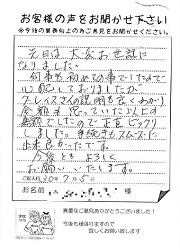 お客様の声をお聞かせ下さい
※今後の業務向上の為ご意見をお聞かせください。
先日は大変お世話に
なりました。
何事も初めての事でしたので
心配しておりましたが
グレイスさんの説明も良くわかり
金額も思っていた以上の
金額でしたので正直びっくり
しました。手続きもスムーズに
出来良かったです。
今後ともよろしく
お願いいたします。
ご記入日30年7月5日
お名前 様
貴重なご意見ありがとうございました!
今後も頑張りますので
宜しくお願い致します